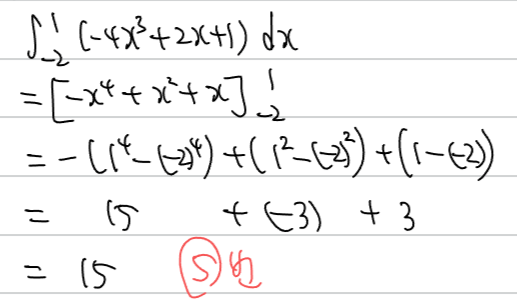 ∫₋₂¹ (-4x³+2x+1) dx
= [-x⁴+x²+x]₋₂¹
= -(1⁴-(-2)⁴)+(1²-(-2)²)+(1-(-2))
= 15 + (-3) + 3
= 15 ⑤번